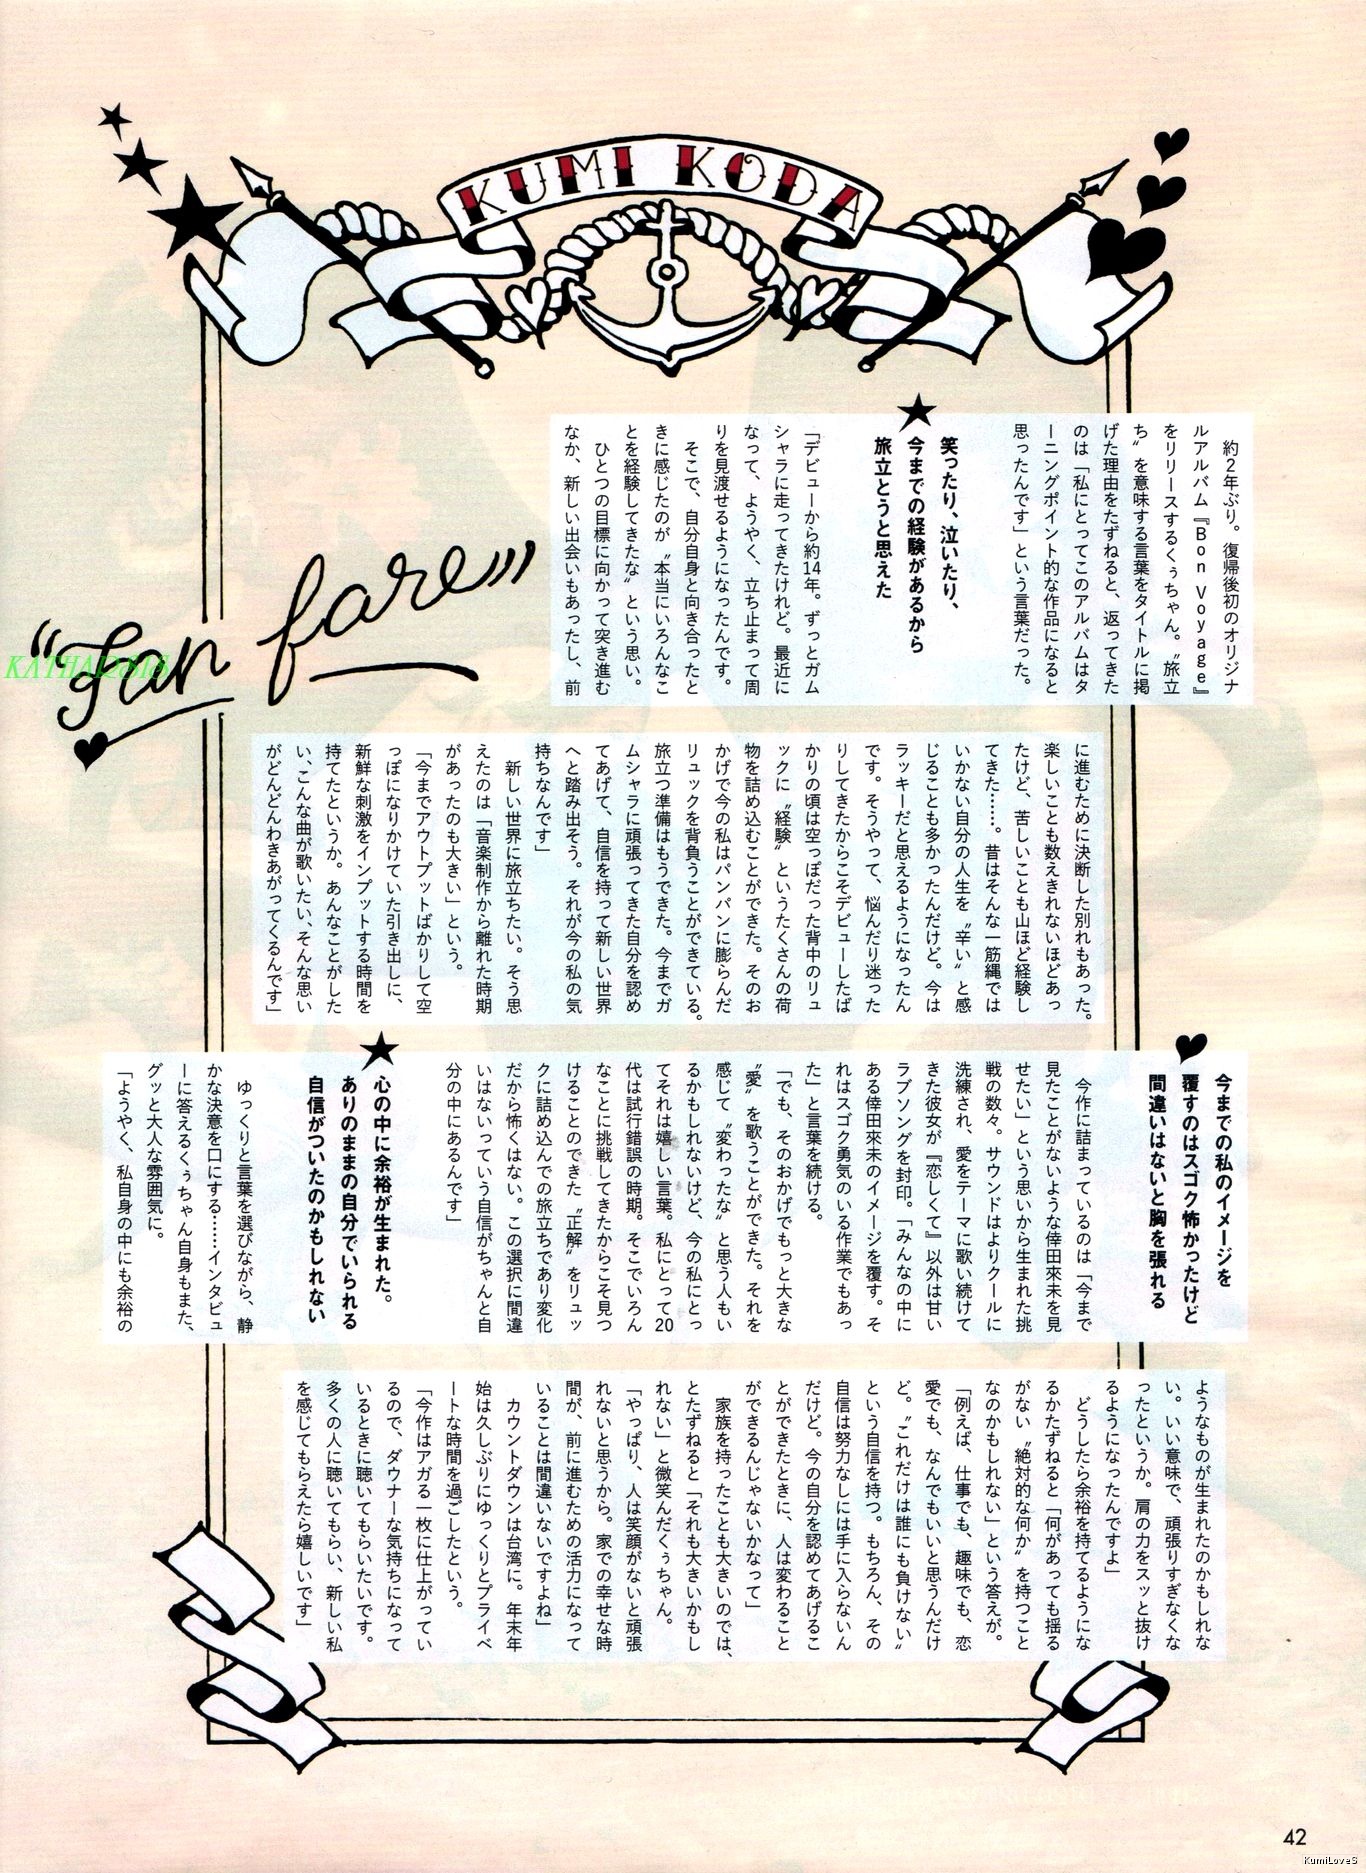 KUMI KODA
"Fan fare"
KATHARSIS
約2年ぶり。復帰後初のオリジナ
ルアルバム『Bon Voyage』
をリリースするくぅちゃん。〝旅立
ち〟を意味する言葉をタイトルに掲
げた理由をたずねると、返ってきた
のは「私にとってこのアルバムはタ
ーニングポイント的な作品になると
思ったんです」という言葉だった。
笑ったり、泣いたり、
今までの経験があるから
旅立とうと思えた
「デビューから約14年。ずっとガム
シャラに走ってきたけれど。最近に
なって、ようやく、立ち止まって周
りを見渡せるようになったんです。
そこで、自分自身と向き合ったと
きに感じたのが〝本当にいろんなこ
とを経験してきたな〟という思い。
ひとつの目標に向かって突き進む
なか、新しい出会いもあったし、前
に進むために決断した別れもあった。
楽しいことも数えきれないほどあっ
たけど、苦しいことも山ほど経験し
てきた……。昔はそんな一筋縄では
いかない自分の人生を〝辛い〟と感
じることも多かったんだけど。今は
ラッキーだと思えるようになったん
です。そうやって、悩んだり迷った
りしてきたからこそデビューしたば
かりの頃は空っぽだった背中のリュ
ックに〝経験〟というたくさんの荷
物を詰め込むことができた。そのお
かげで今の私はパンパンに膨らんだ
リュックを背負うことができている。
旅立つ準備はもうできた。今までガ
ムシャラに頑張ってきた自分を認め
てあげて、自信を持って新しい世界
へと踏み出そう。それが今の私の気
持ちなんです」
新しい世界に旅立ちたい。そう思
えたのは「音楽制作から離れた時期
があったのも大きい」という。
「今までアウトプットばかりして空
っぽになりかけていた引き出しに、
新鮮な刺激をインプットする時間を
持てたというか。あんなことがした
い、こんな曲が歌いたい、そんな思い
がどんどんわきあがってくるんです」
今までの私のイメージを
覆すのはスゴク怖かったけど
間違いはないと胸を張れる
今作に詰まっているのは「今まで
見たことがないような倖田來未を見
せたい」という思いから生まれた挑
戦の数々。サウンドはよりクールに
洗練され、愛をテーマに歌い続けて
きた彼女が『恋しくて』以外は甘い
ラブソングを封印。「みんなの中に
ある倖田來未のイメージを覆す。そ
れはスゴク勇気のいる作業でもあっ
た」と言葉を続ける。
「でも、そのおかげでもっと大きな
〝愛〟を歌うことができた。それを
感じて〝変わったな〟と思う人もい
るかもしれないけど、今の私にとっ
てそれは嬉しい言葉。私にとって20
代は試行錯誤の時期。そこでいろん
なことに挑戦してきたからこそ見つ
けることのできた〝正解〟をリュッ
クに詰め込んでの旅立ちであり変化
だから怖くはない。この選択に間違
いはないっていう自信がちゃんと自
分の中にあるんです」
心の中に余裕が生まれた。
ありのままの自分でいられる
自信がついたのかもしれない
ゆっくりと言葉を選びながら、静
かな決意を口にする……インタビュ
ーに答えるくぅちゃん自身もまた、
グッと大人な雰囲気に。
「ようやく、私自身の中にも余裕の
ようなものが生まれたのかもしれな
い。いい意味で、頑張りすぎなくな
ったというか。肩の力をスッと抜け
るようになったんですよ」
どうしたら余裕を持てるようにな
るかたずねると「何があっても揺る
がない〝絶対的な何か〟を持つこと
なのかもしれない」という答えが。
「例えば、仕事でも、趣味でも、恋
愛でも、なんでもいいと思うんだけ
ど。〝これだけは誰にも負けない〟
という自信を持つ。もちろん、その
自信は努力なしには手に入らないん
だけど。今の自分を認めてあげるこ
とができたときに、人は変わること
ができるんじゃないかなって」
家族を持ったことも大きいのでは、
とたずねると「それも大きいかもし
れない」と微笑んだくぅちゃん。
「やっぱり、人は笑顔がないと頑張
れないと思うから。家での幸せな時
間が、前に進むための活力になって
いることは間違いないですよね」
カウントダウンは台湾に。年末年
始は久しぶりにゆっくりとプライベ
ートな時間を過ごしたという。
「今作はアガる一枚に仕上がってい
るので、ダウナーな気持ちになって
いるときに聴いてもらいたいです。
多くの人に聴いてもらい、新しい私
を感じてもらえたら嬉しいです」
42
KumiLoveS